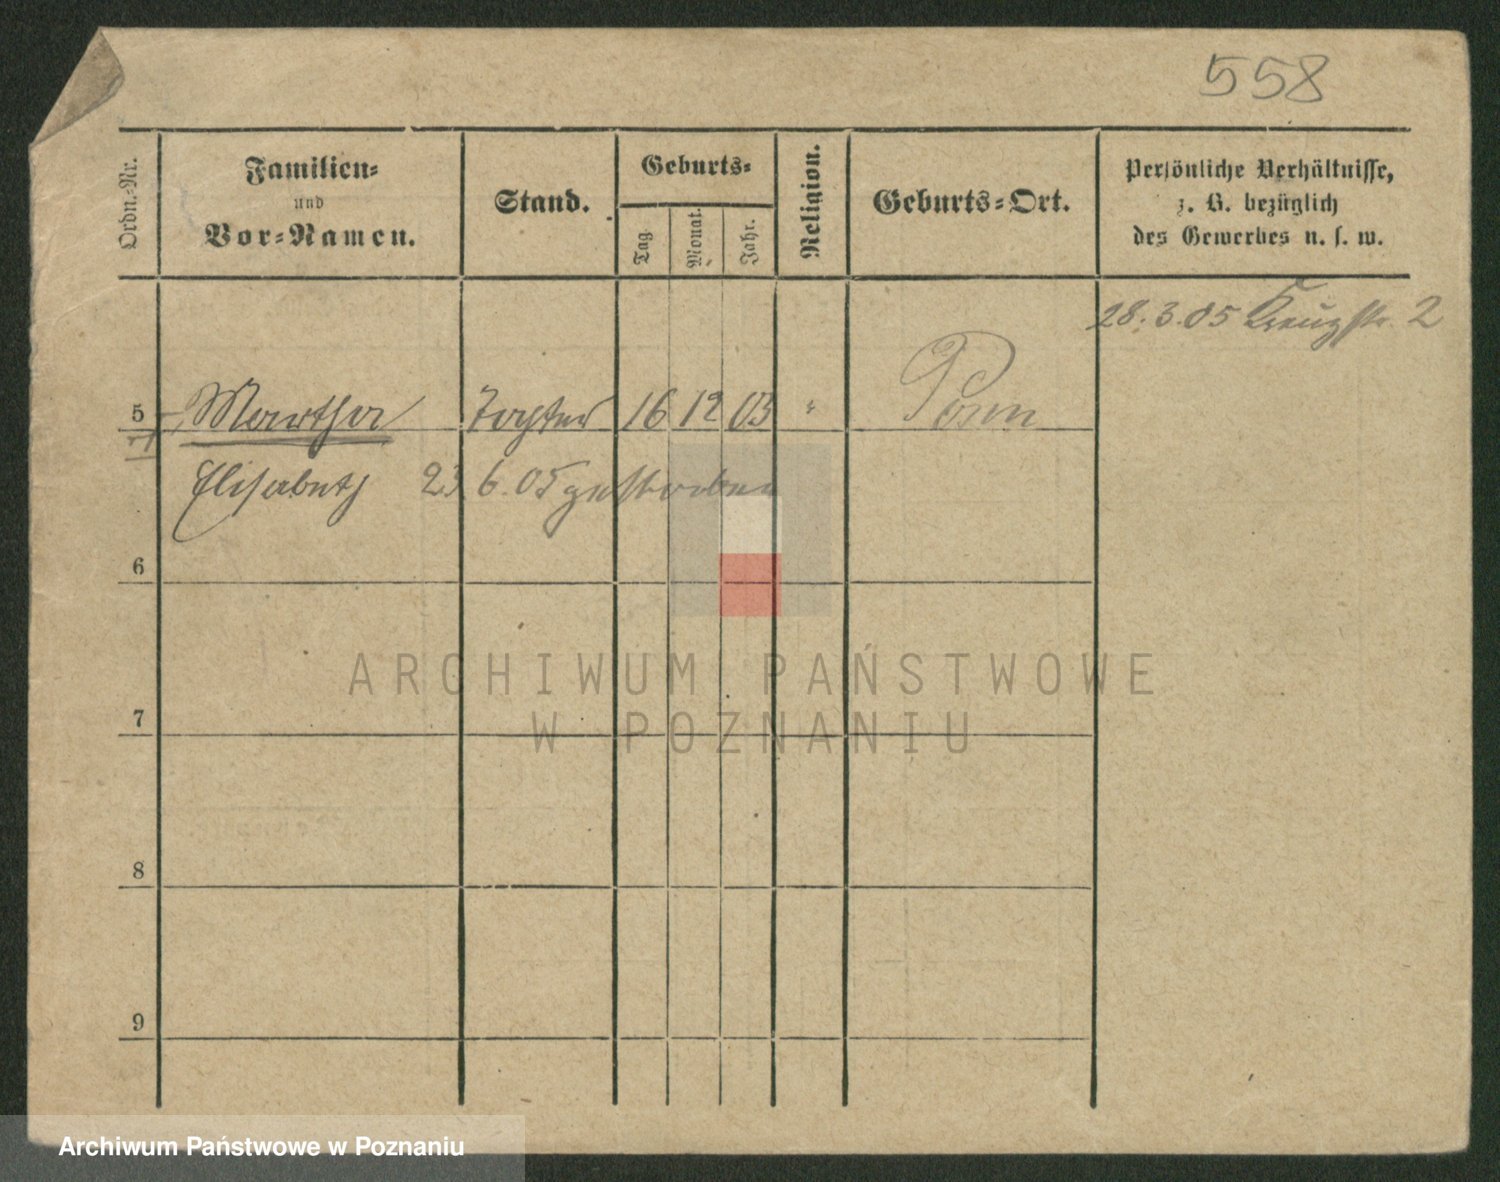 558
Ordn.-Nr.
Familien-
und
Vor-Namen.
Stand.
Geburts-
Tag.
Monat.
Jahr.
Religion.
Geburts-Ort.
Persönliche Verhältnisse,
z. B. bezüglich
des Gewerbes u. s. w.
28.3.05 Kreuzstr. 2
5 Martha Tochter 16 12 03 " Posen
Elisabeth 23 6. 05 gestorben
6
7
8
9
ARCHIWUM PAŃSTWOWE
W POZNANIU
Archiwum Państwowe w Poznaniu